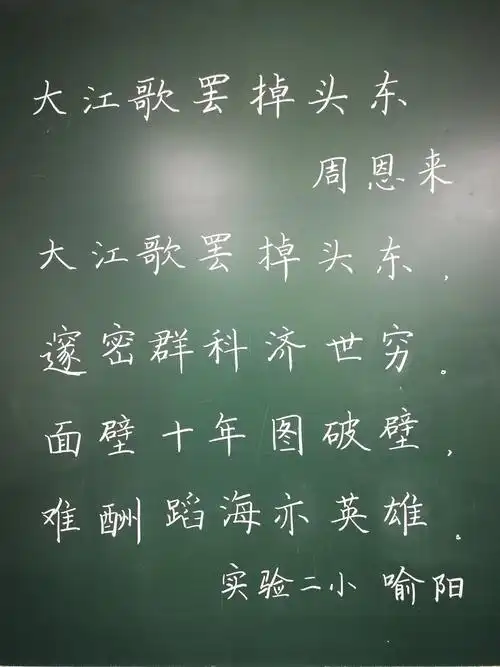 大江歌罢掉头东
周恩来
大江歌罢掉头东，
邃密群科济世穷。
面壁十年图破壁，
难酬蹈海亦英雄。
实验二小 喻阳